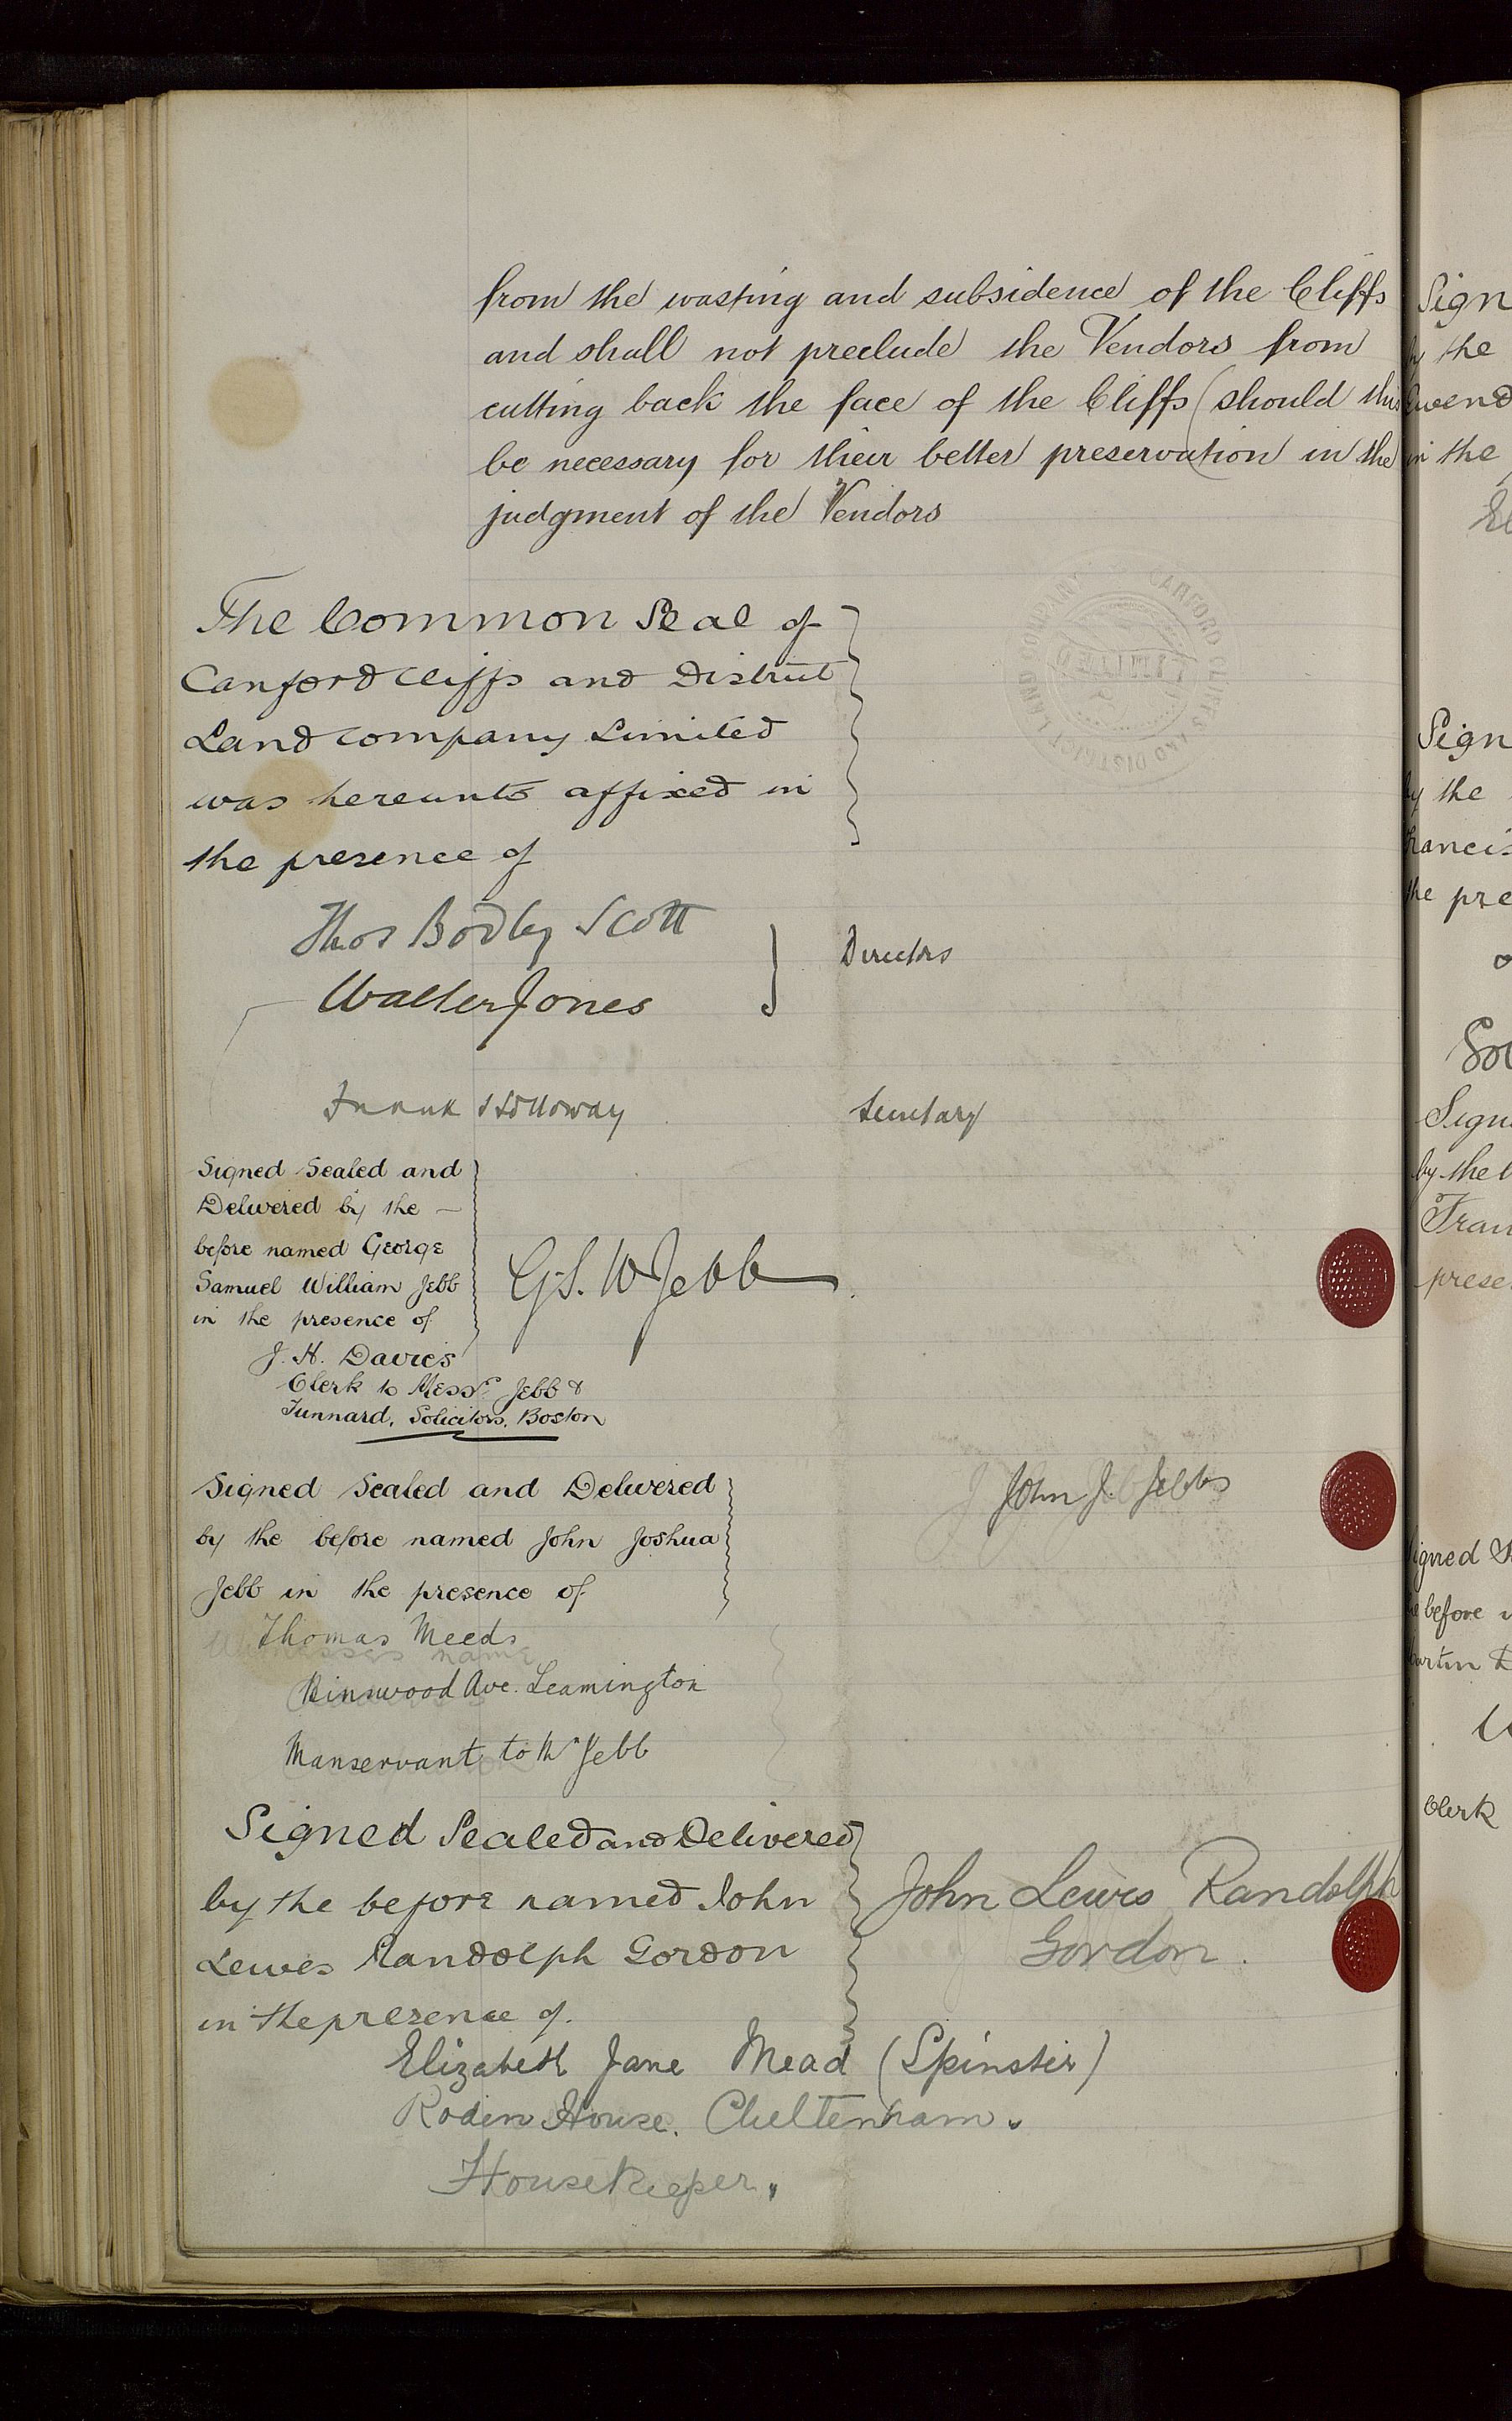 from the wasting and subsidence of the Cliffs
and shall not preclude the Vendors from
cutting back the face of the Cliffs (should this
be necessary for their better preservation in the
judgment of the Vendors
The Common Seal of
Canford Cliffs and District
Land Company Limited
was hereunto affixed in
the presence of
CANFORD CLIFFS AND DISTRICT LAND COMPANY
LIMITED
Thos Bodley Scott
Walter Jones
Directors
Frank Holloway
Secretary
Signed Sealed and
Delivered by the —
before named George
Samuel William Jebb
in the presence of
G.S. W Jebb
J. H. Davies
Clerk to Messrs. Jebb &
Tunnard, Solicitors, Boston
Signed Sealed and Delivered
by the before named John Joshua
Jebb in the presence of
John J. Jebb
Thomas Meeds
Binswood Ave. Leamington
Manservant to Mr Jebb
Signed Sealed and Delivered
by the before named John
Lewes Randolph Gordon
in the presence of.
John Lewes Randolph
Gordon.
Elizabeth Jane Mead (Spinster)
Roden House. Cheltenham.
Housekeeper.
Sign
by the
in the
Sign
by the
the pre
Sign
by the
prese
before
Clerk